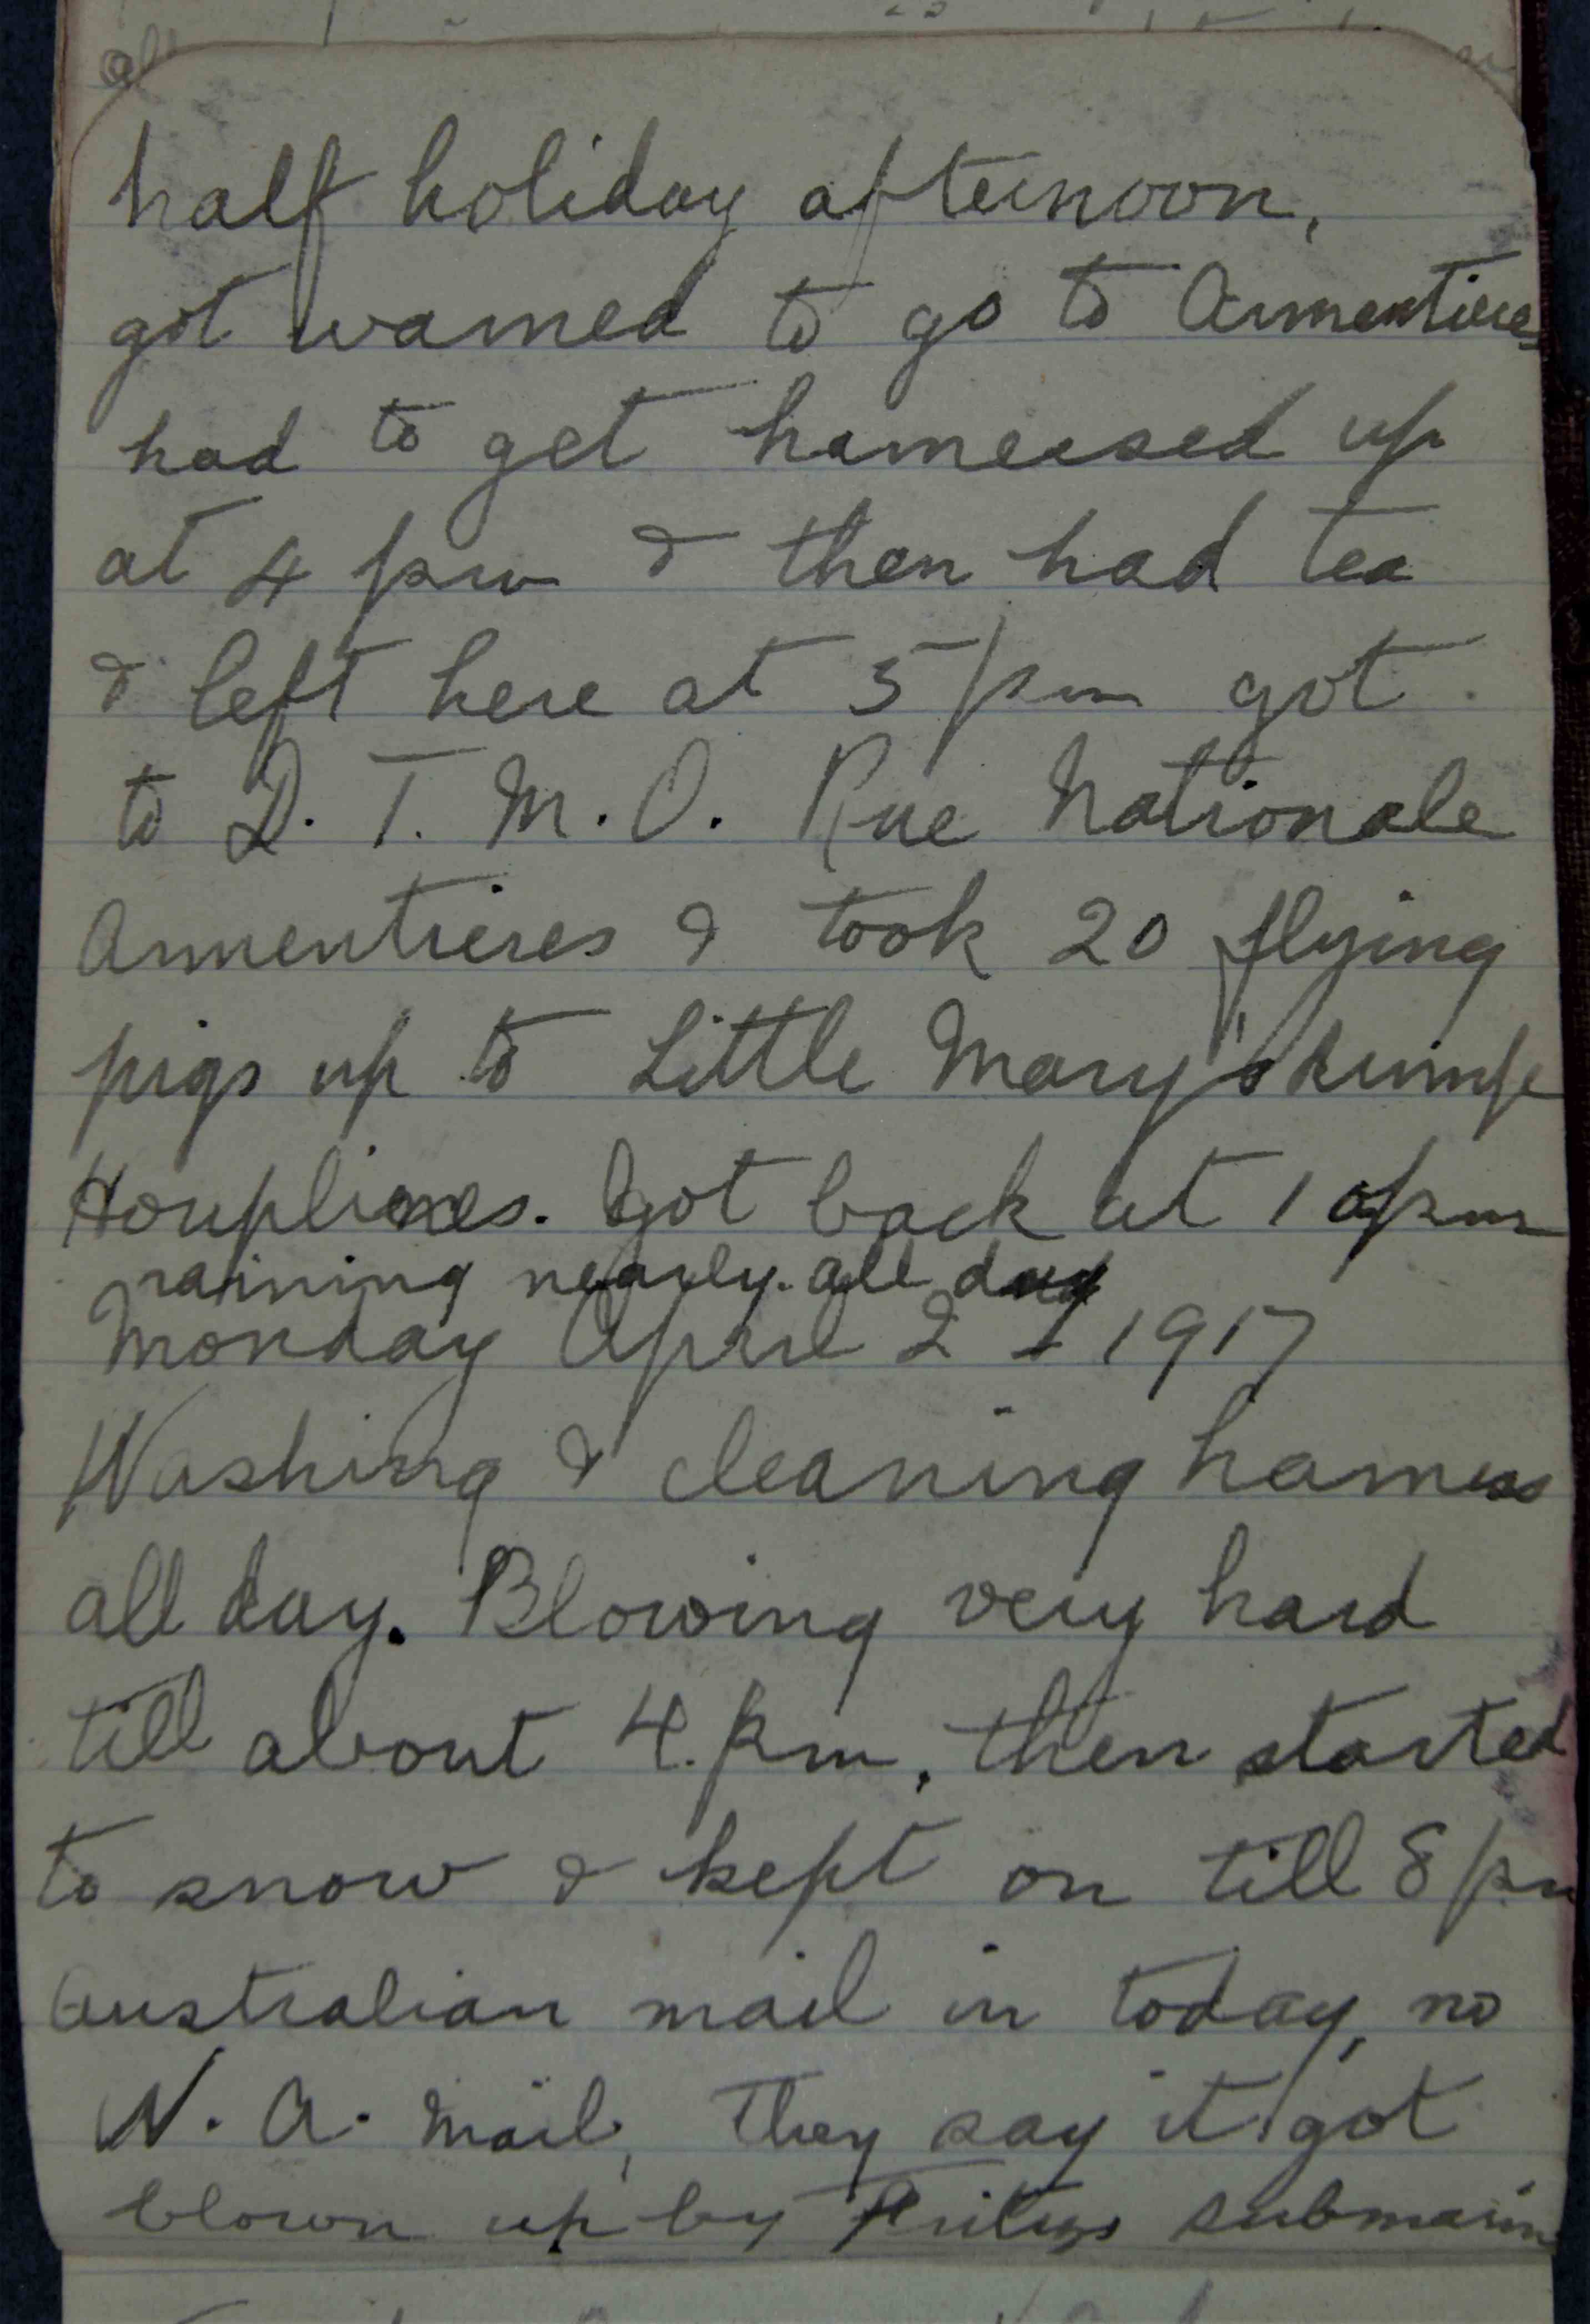 half holiday afternoon,
got warned to go to Armentieres
had to get harnessed up
at 4 pm & then had tea
& left here at 5 pm got
to D. T. M. O. Rue Nationale
Armentieres & took 20 flying
pigs up to Little Mary's dump
Houplines. Got back at 10 pm
raining nearly all day
Monday April 2 - 1917
Washing & cleaning harness
all day. Blowing very hard
till about 4. pm, then started
to snow & kept on till 8 pm
Australian mail in today, no
W. A. mail, They say it got
blown up by Fritzs submarine